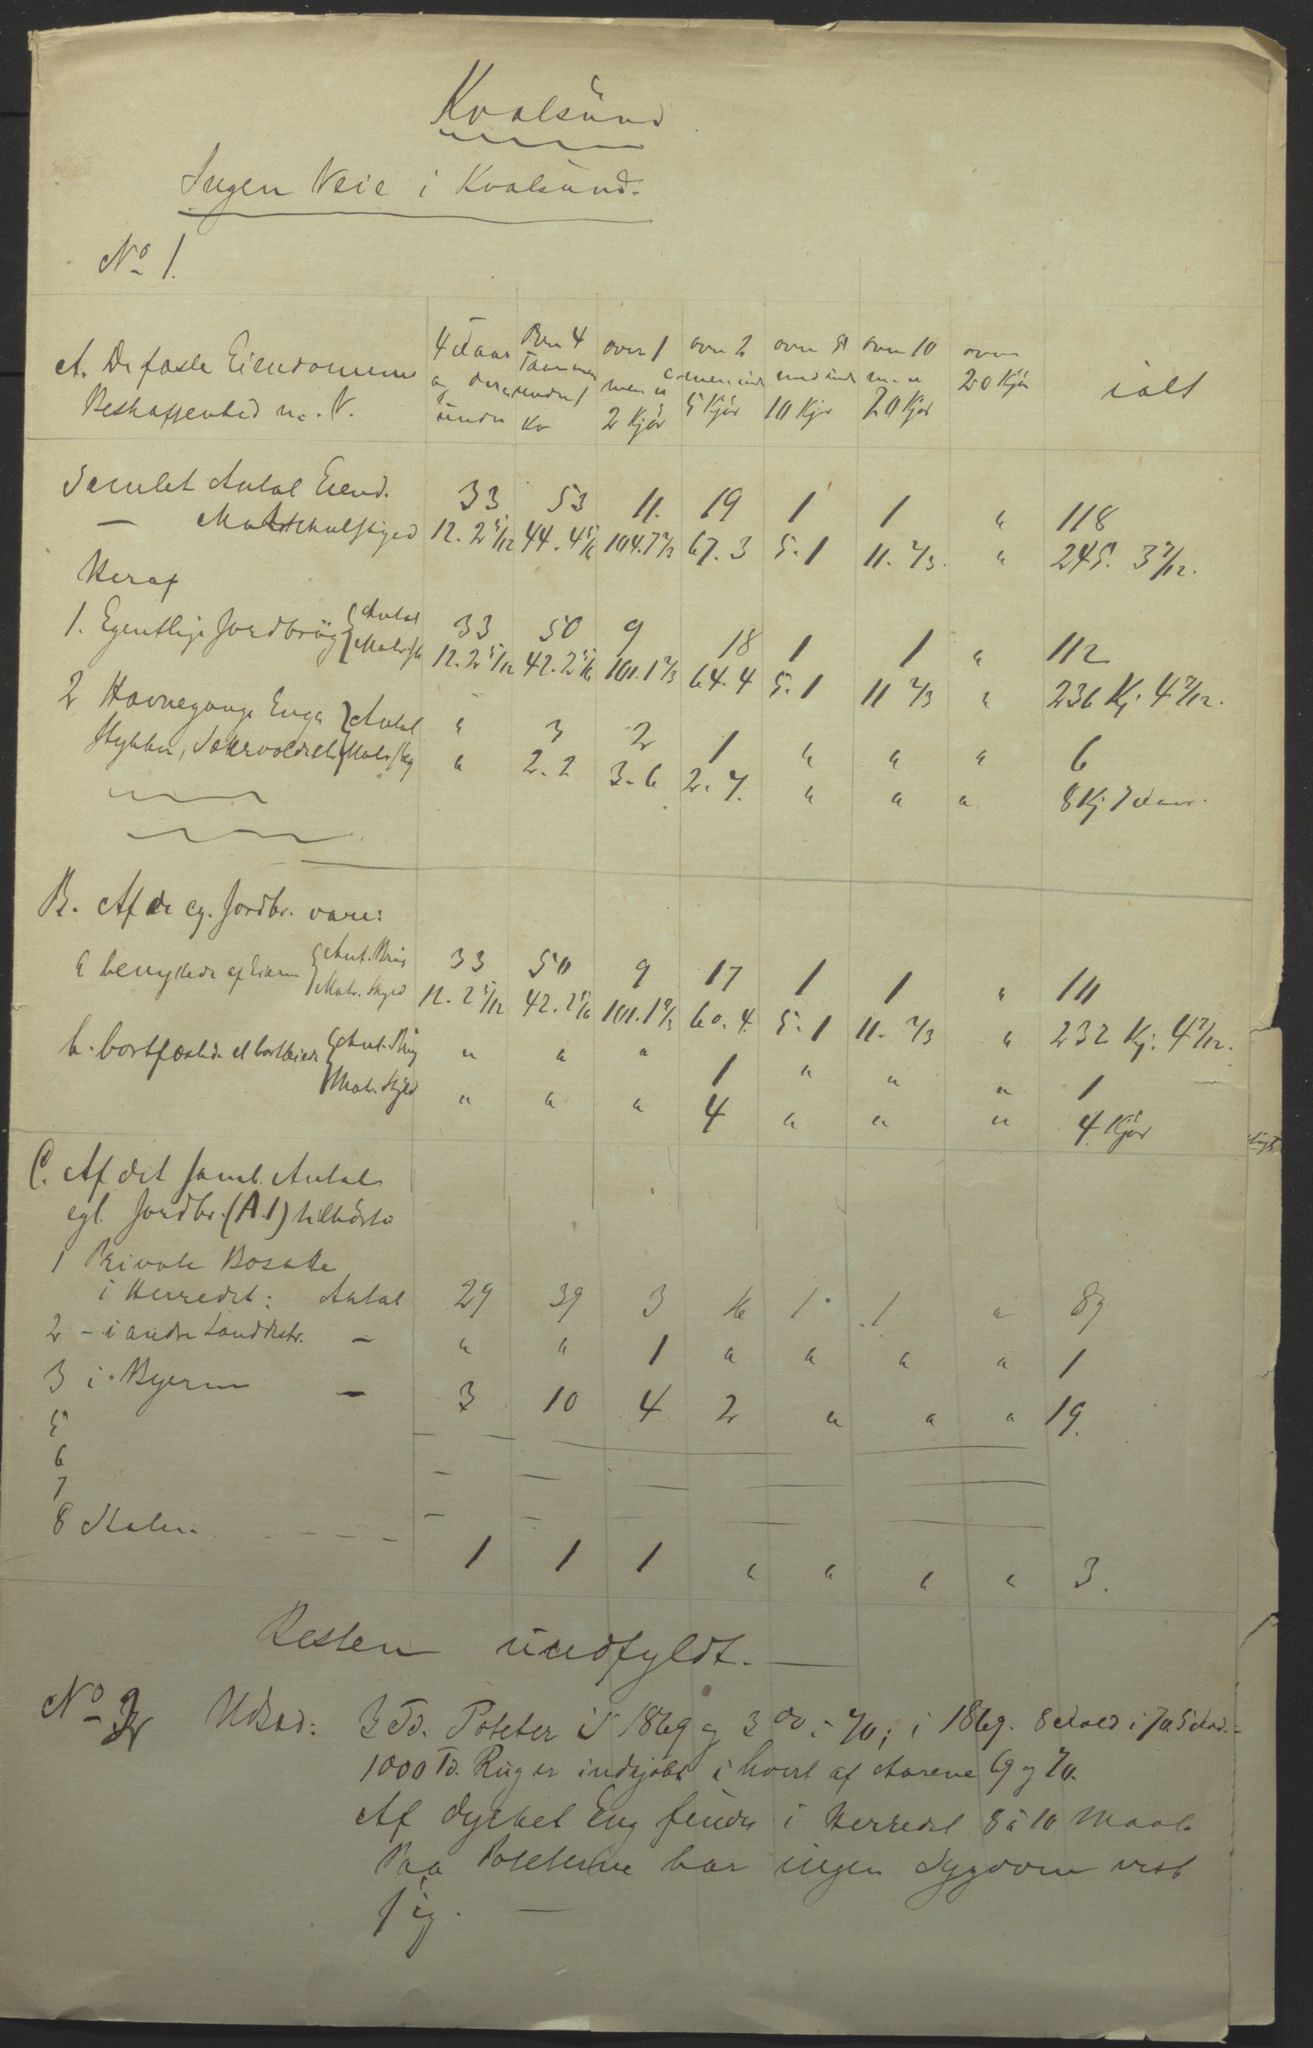 Kvalsund
Ingen Veie i Kvalsund.
No 1.
A. De faste Eiendommes Beskaffenhed m. V. | 4 Daar og derunder | Over 4 under 1 Ko | over 1 men u 2 Kjør | over 2 men und 5 Kjør | over 5 und 10 Kjør | over 10 m. u 20 Kjør | over 20 Kjør | ialt
Samlet Antal Eiend. 33. 53 11. 19 1 1 " 118
— Matrikulskyld 12. 2 5/12 44. 4 5/6 104. 7 2/3 67. 3 5. 1 11. 2/3. " 245. 3 7/12.
Heraf
1. Egentlige Jordbrug Antal 33 50 9 18 1 1 " 112
Matr. sk 12. 2 5/12 42. 2 5/6 101. 1 2/3 64. 4 5. 1 11 2/3 " 236 Kj. 4 7/12.
2 Havnegange Enge Antal " 3 2 1 " " " 6
stykker, Matr. skyl " 2. 2 3. 6 2. 7. " " " 8 Kj 7 daar.
B. Af de eg. Jordbr. vare:
a benyttede af Eieren Ant. Brug 33 50 9 17 1 1 " 111
Matr. Skyld 12. 2 5/12 42. 2 5/6 101. 1 2/3 60. 4. 5. 1 11. 2/3 " 232 Kj. 4 7/12.
b. bortfæstede el bortleiede Ant. Brug " " " 1 " " " 1
Matr. Skyld " " " 4 " " " 4 Kjør
C. Af det saml. Antal
egl. Jordbr. (A.1) tilhørte
1 Private Bosatte
i Herredet: Antal 29 39 3 16 1 1 " 89
2 - i andre Landdistr. — " " 1 " " " " 1
3 i Byerne — 3 10 4 2 " " " 19.
5
6
7
8 Staten 1 1 1 " " " " 3.
Resten uudfyldt. —
No 2 Udsæd: 3 Td. Poteter i 1869 og 3 do i 70; i 1869. 8 dold i 70 5 dod.
1000 Td. Rug er indkjøbt i hvert af Aarene 69 og 70.
Af dyrket Eng findes i Herredet 8 à 10 Maal.
Paa Poteterne har ingen Sygdom vist
sig. —